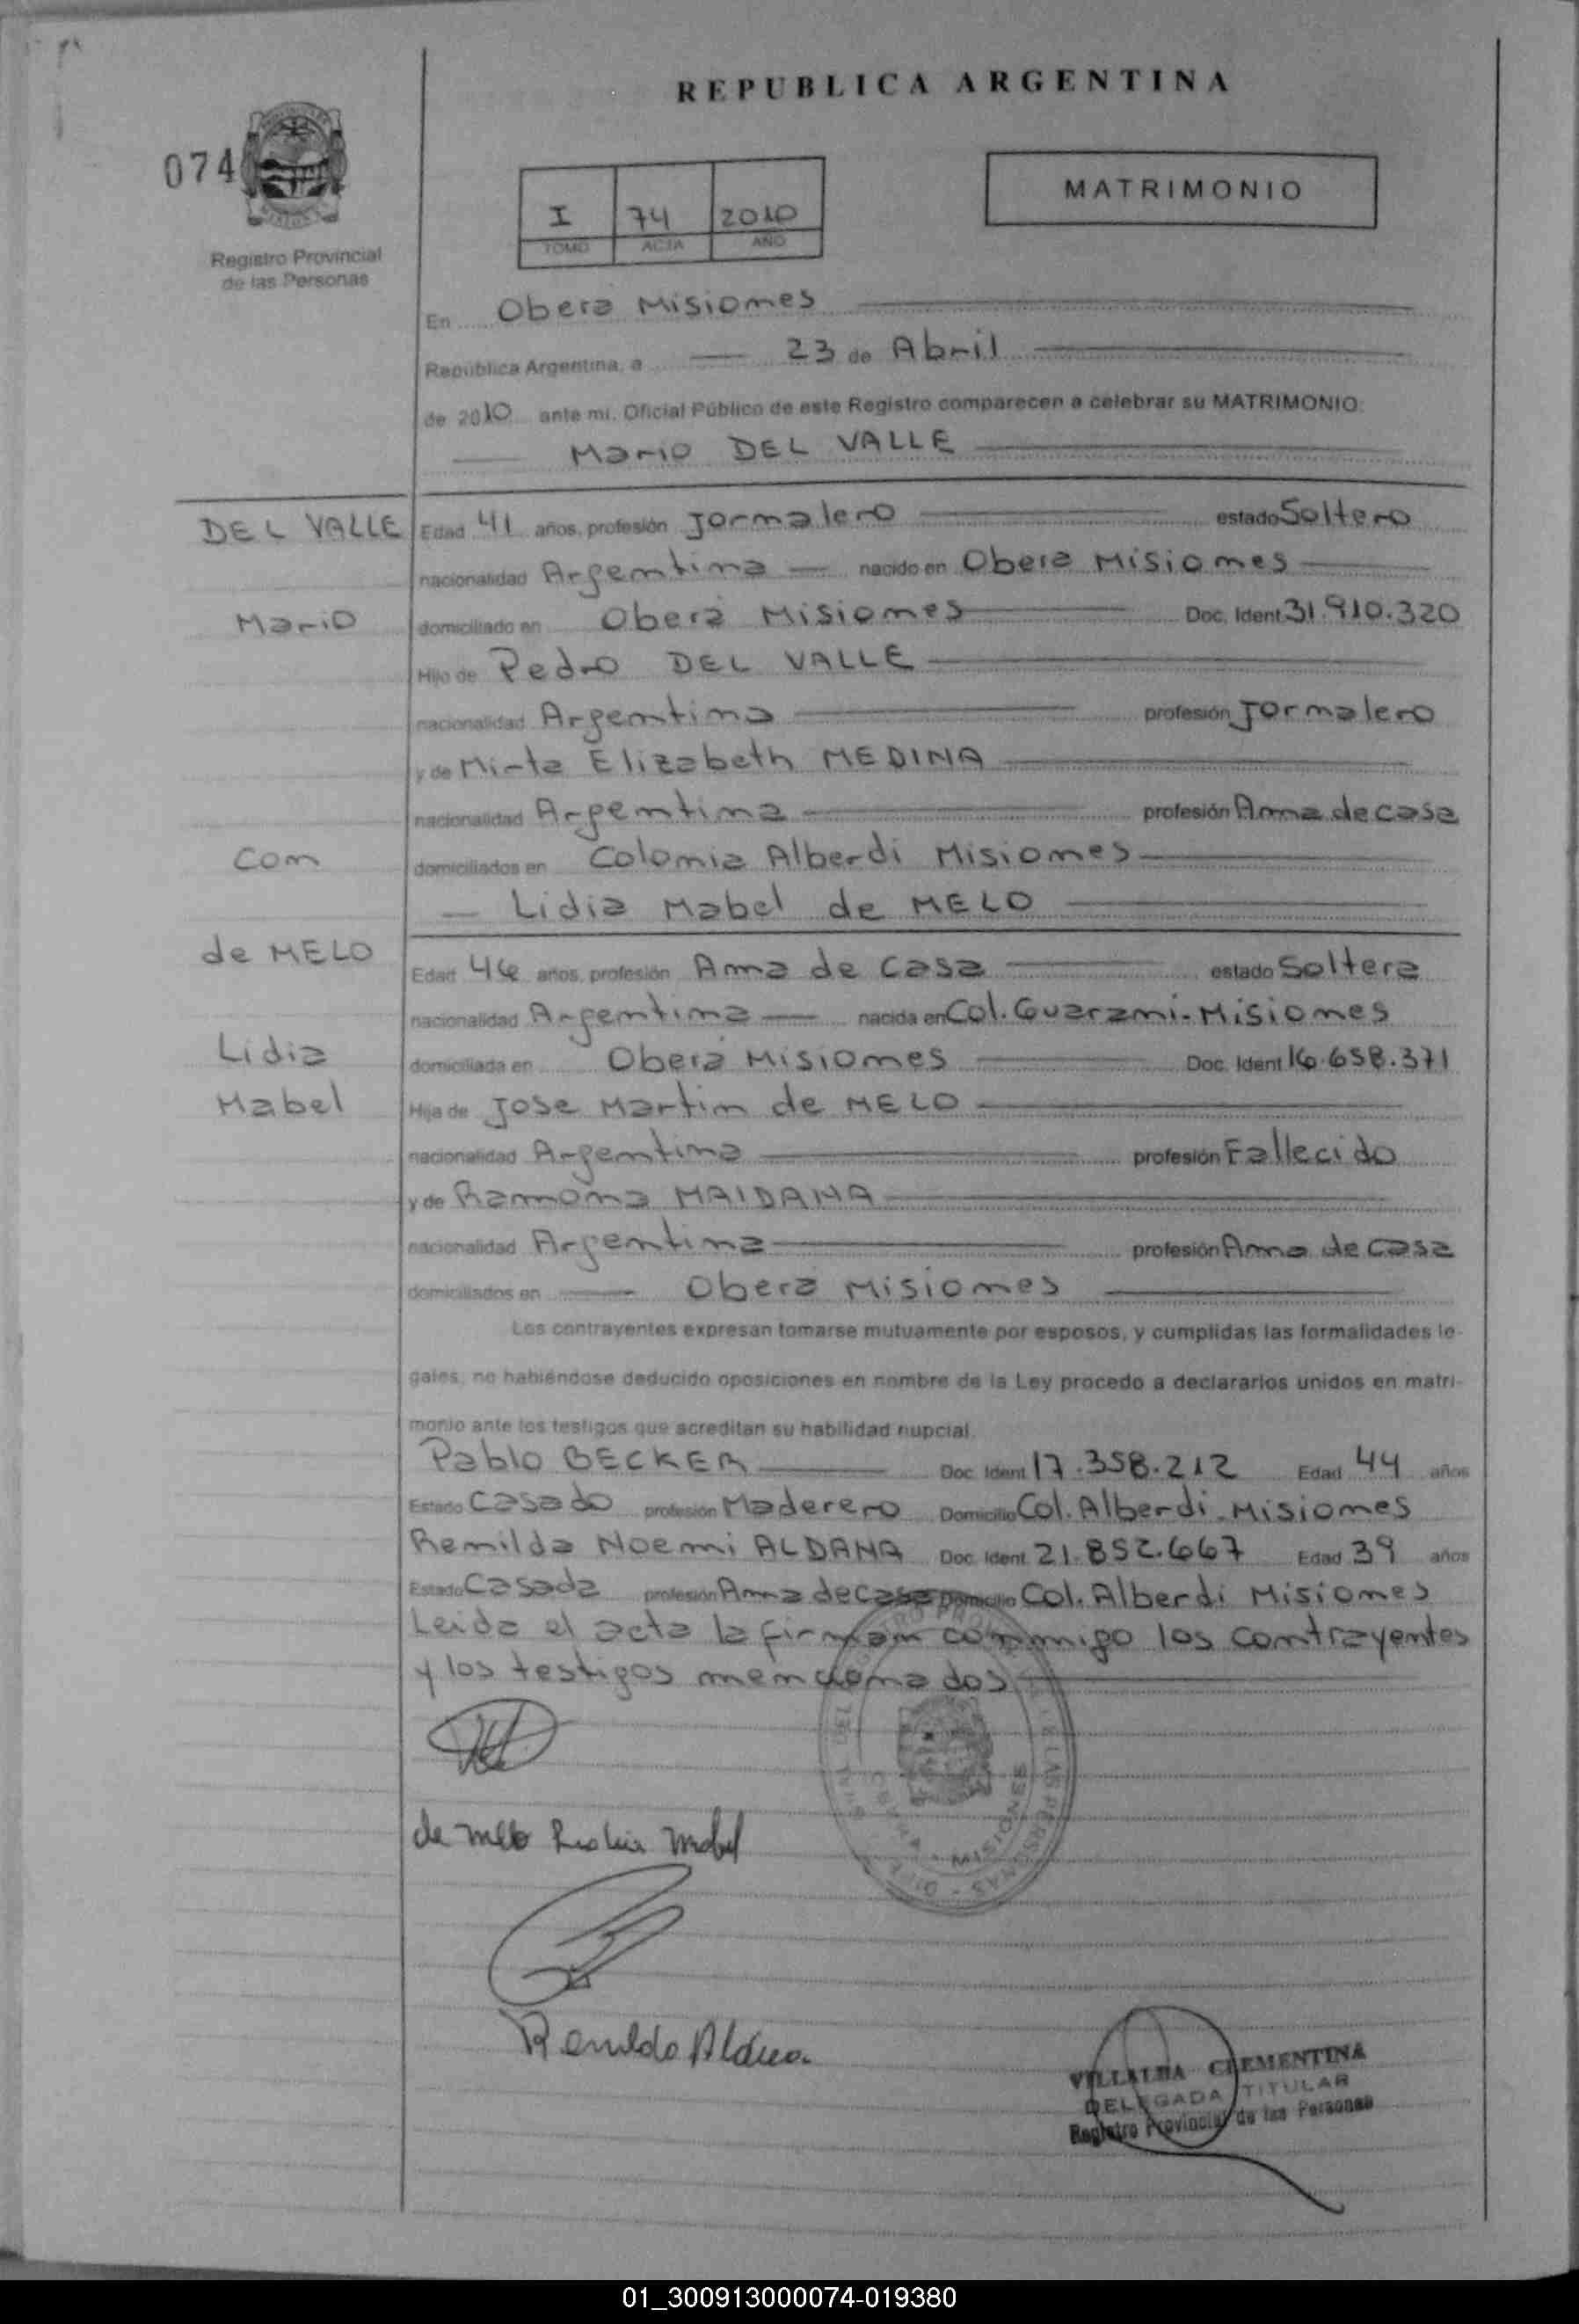 REPUBLICA ARGENTINA
074
MATRIMONIO
I 74 2010
TOMO ACTA AÑO
Registro Provincial
de las Personas
En Obera Misiones
República Argentina, a 23 de Abril
de 2010 ante mi, Oficial Público de este Registro comparecen a celebrar su MATRIMONIO:
Mario DEL VALLE
DEL VALLE Edad 41 años, profesión Jornalero estado Soltero
nacionalidad Argentina nacido en Obera Misiones
Mario domiciliado en Oberá Misiones Doc. Ident 31.910.320
Hijo de Pedro DEL VALLE
nacionalidad Argentina profesión Jornalero
y de Mirta Elizabeth MEDINA
nacionalidad Argentina profesión Ama de casa
Con domiciliados en Colonia Alberdi Misiones
Lidia Mabel de MELO
de MELO Edad 46 años, profesión Ama de Casa estado Soltera
nacionalidad Argentina nacida en Col. Guarani-Misiones
Lidia domiciliada en Oberá Misiones Doc. Ident 16.658.371
Mabel Hija de Jose Martin de MELO
nacionalidad Argentina profesión Fallecido
y de Ramona MAIDANA
nacionalidad Argentina profesión Ama de Casa
domiciliados en Obera Misiones
Los contrayentes expresan tomarse mutuamente por esposos, y cumplidas las formalidades le-
gales, no habiéndose deducido oposiciones en nombre de la Ley procedo a declararlos unidos en matri-
monio ante los testigos que acreditan su habilidad nupcial.
Pablo BECKER Doc. Ident 17.358.212 Edad 44 años
Estado Casado profesión Maderero Domicilio Col. Alberdi-Misiones
Remilda Noemi ALDANA Doc. Ident 21.852.667 Edad 39 años
Estado Casada profesión Ama de casa Domicilio Col. Alberdi Misiones
Leida el acta la firman conmigo los contrayentes
y los testigos mencionados
de melo Mabel
VILLALBA CLEMENTINA
DELEGADA TITULAR
Registro Provincial de las Personas
01_300913000074-019380